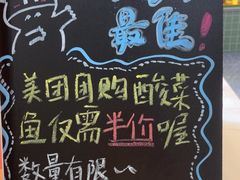 最佳!
美团团购酸菜
鱼仅需半价喔
数量有限~